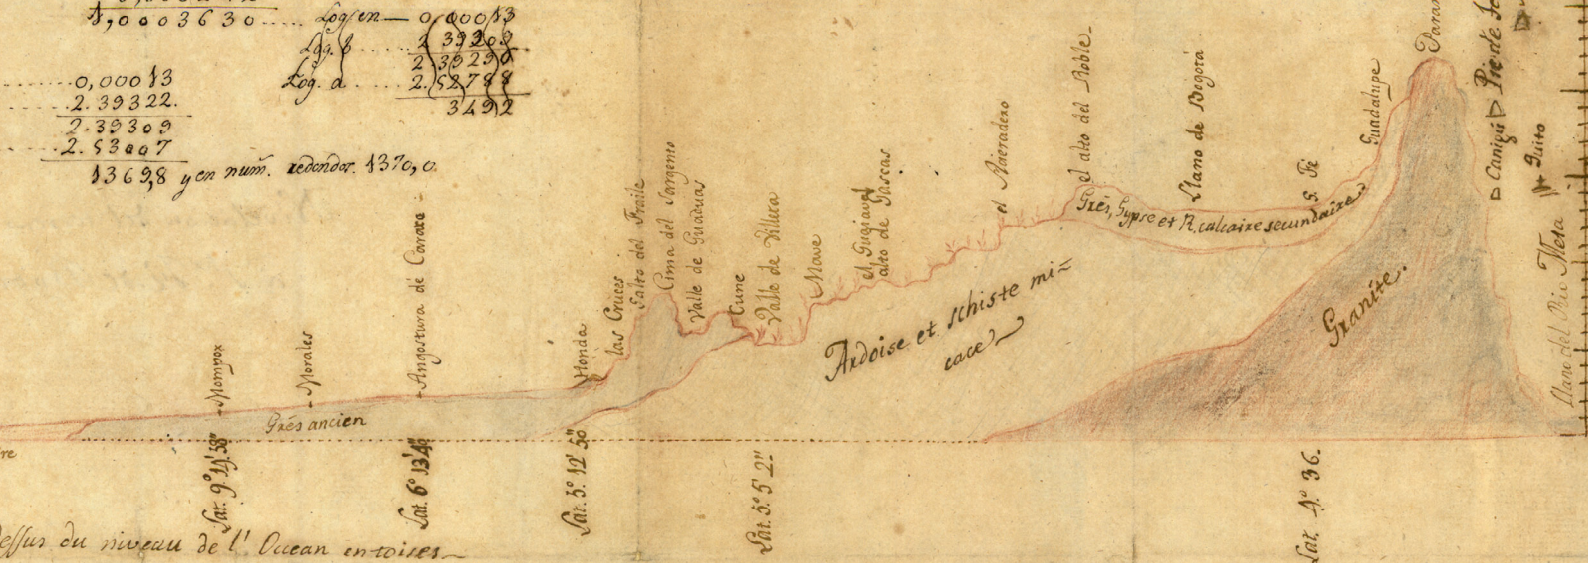 1,0003630.... Log en — 0,00013
Log. b ..... 2 39209
2.39290
Log. a ..... 2.52788
3492
......0,00013
......2.39322.
2.39309
2.53007
1369,8 y en num. redondos. 1370,0.
Mompox
Morales
Angostura de Carare
Honda
las Cruces
Salto del Fraile
Cima del Sargento
Valle de Guaduas
Cune
Valle de Villeta
Mave
el Gugiaual
alto de Gascas
el Aseradero
el alto del Roble
Llano de Bogotá
S. Fé
Guadalupe
Param
Canigú
Pic de
Quito
Llano del Rio Meta
Grés, Gypse et R. calcaire secundaire
Ardoise et schiste mi=
cace
Granite.
Grés ancien
re
Lat. 9° 14' 38"
Lat. 6° 13' 40"
Lat. 5° 12' 50"
Lat. 5° 5' 2"
Lat. 4° 36.
dessus du niveau de l'Ocean en toises